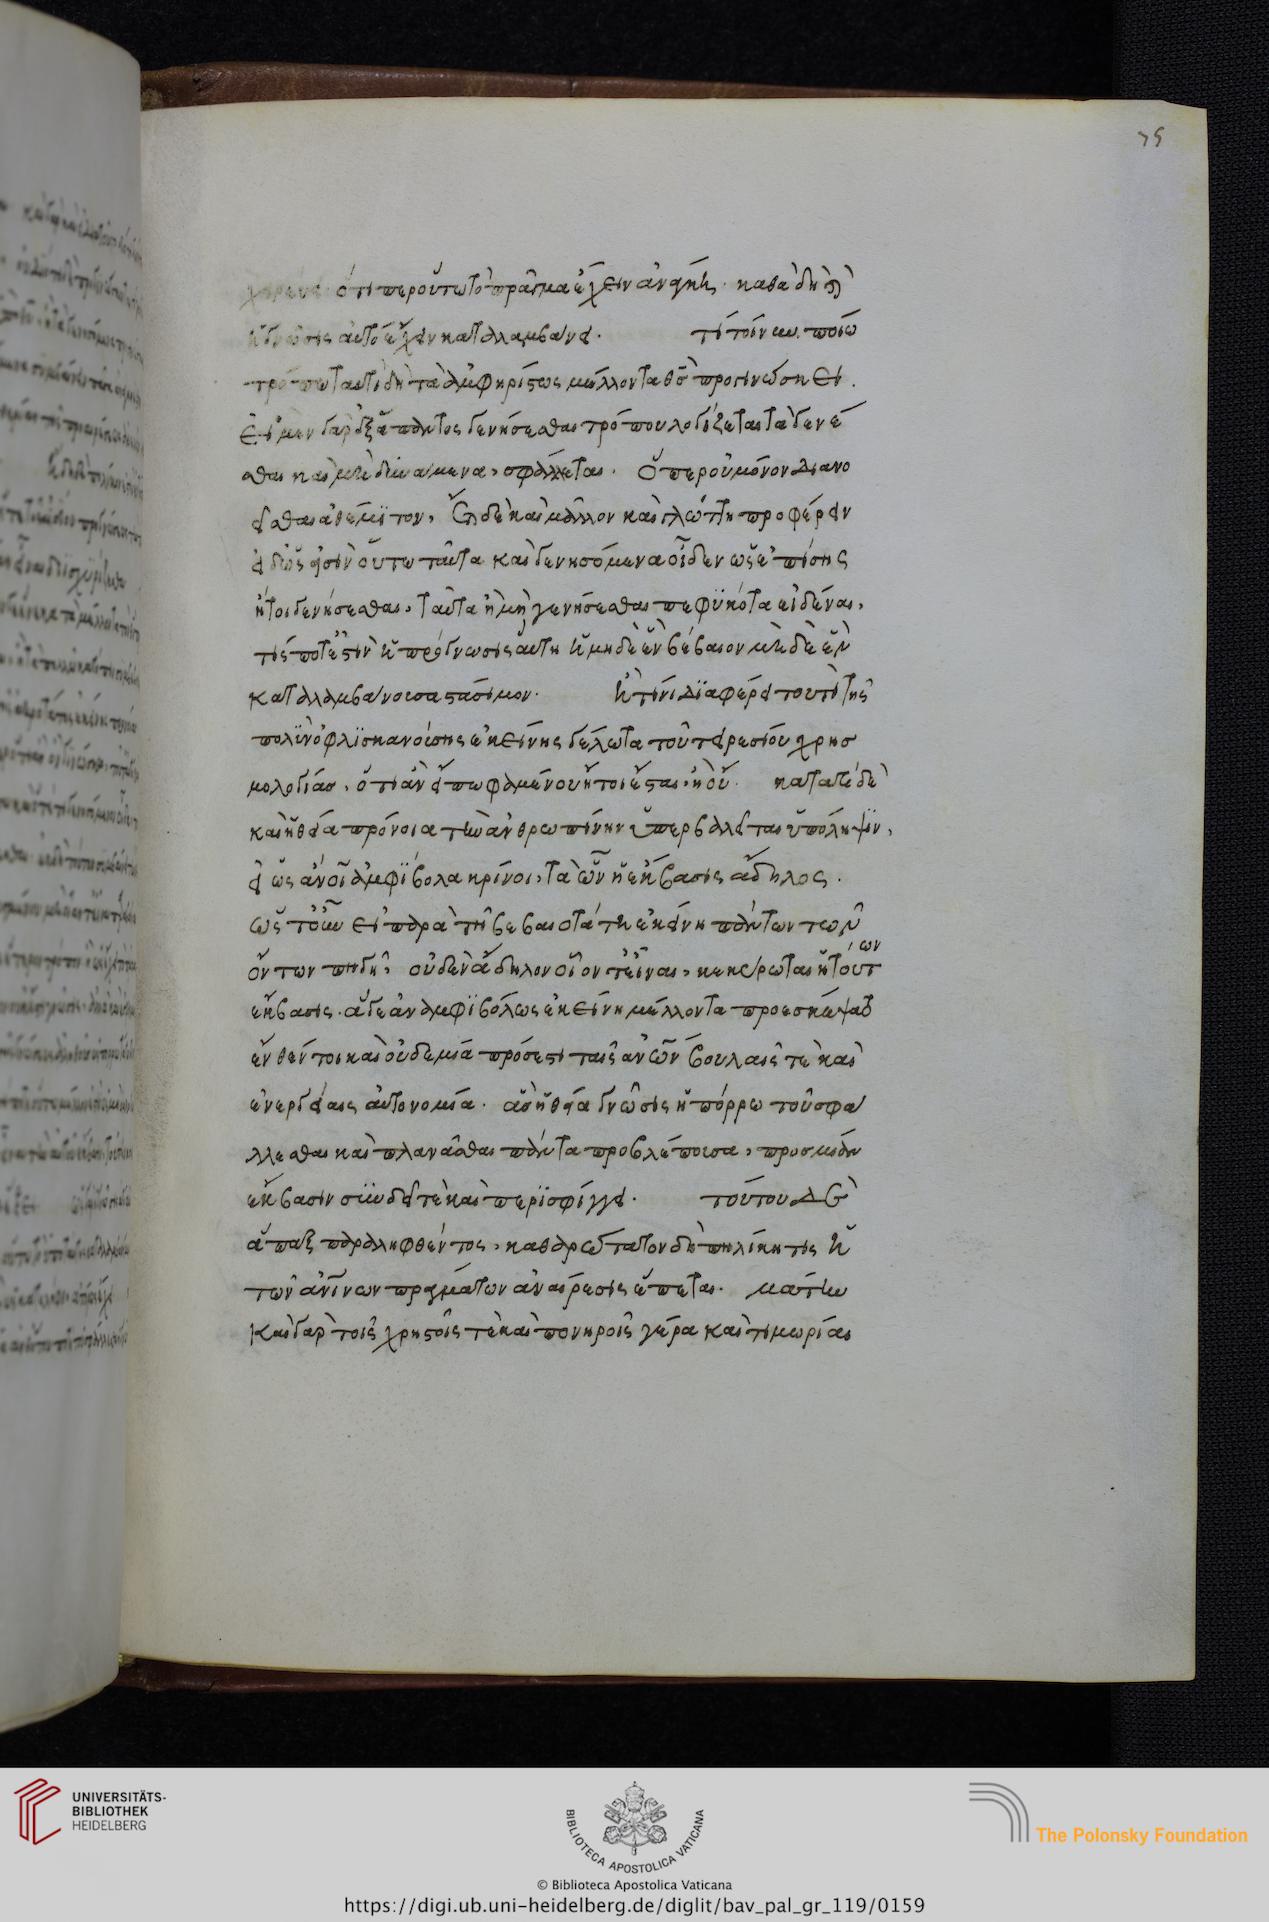 75
ὅτι περ οὕτω τὸ πρᾶγμα ἔχειν ἀνάγκης. καθὰ δὴ καὶ
ἡ γνῶσις αὐτὸ ἔχειν καταλαμβάνει. τί τοίνυν. ποίω
τρόπω ταυτὶ δὴ τὰ ἀμφηρίστως μέλλοντα θς προγινώσκει.
εἰ μὲν γὰρ ἐξάπαντος γενήσεσθαι τρόπου λογίζεται τὰ γενέ
σθαι καὶ μὴ δυνάμενα, σφάλλεται. ὅπερ οὐ μόνον διανο
εῖσθαι ἀθέμιτον, ἔτι δὲ καὶ μᾶλλον καὶ γλώττη προφέρειν
εἰ δ' ὥς εἰσιν οὕτω ταῦτα καὶ γενησόμενα οἶδεν ὡς ἐπίσης
ἤτοι γενήσεσθαι, ταῦτα ἢ μὴ γενήσεσθαι πεφυκότα εἰδέναι,
τίς ποτ' ἐστὶν ἡ πρόγνωσις αὕτη ἡ μηδὲν βέβαιον μηδὲ ἓν
καταλαμβάνουσα στάσιμον. ἢ τίνι διαφέρει τουτὶ τῆς
πολὺν ὀφλισκανούσης ἐκείνης γέλωτα τοῦ τειρεσίου χρησ
μολογίας, ὅτι ἂν εἴπω φαμένου ἤτοι ἔσται, ἢ οὔ. κατὰ τί δὲ
καὶ ἡ θεία πρόνοια τὴν ἀνθρωπίνην ὑπερβάλεῖται ὑπόληψιν,
εἰ ὡς ἀνοι ἀμφίβολα κρίνοι, τὰ ὧν ἡ ἔκβασις ἄδηλος.
ὡς τοίνυν εἰ παρὰ τῆ βεβαιοτάτη ἐκείνη πάντων τῶν
ὄντων πηγῆ, οὐδὲν ἄδηλον οἷον τ' εἶναι, κεκύρωται ἡ τούτων
ἔκβασις. ἅ γε ἀναμφιβόλως ἐκείνη μέλλοντα προεσκέψατο
ἔνθέν τοι καὶ οὐδεμία πρόσεστι ταῖς ἀνων βουλαῖς τὲ καὶ
ἐνεργείαις αὐτονομία. ἃς ἡ θεία γνῶσις ἡ πόρρω τοῦ σφά
λλεσθαι καὶ πλανᾶσθαι πάντα προβλέπουσα, πρὸς μίαν
ἔκβασιν συνδεῖ τὲ καὶ περισφίγγει. τούτου δὲ
ἅπαξ παραληφθέντος, καθαρώτατον δὴ πηλίκη τις ἡ
τῶν ἀνίνων πραγμάτων ἀναίρεσις ἕπεται. μάτην
καὶ γὰρ τοῖς χρηστοῖς τὲ καὶ πονηροῖς γέρα καὶ τιμωρίαι
UNIVERSITÄTS-
BIBLIOTHEK
HEIDELBERG
BIBLIOTECA APOSTOLICA VATICANA
The Polonsky Foundation
© Biblioteca Apostolica Vaticana
https://digi.ub.uni-heidelberg.de/diglit/bav_pal_gr_119/0159